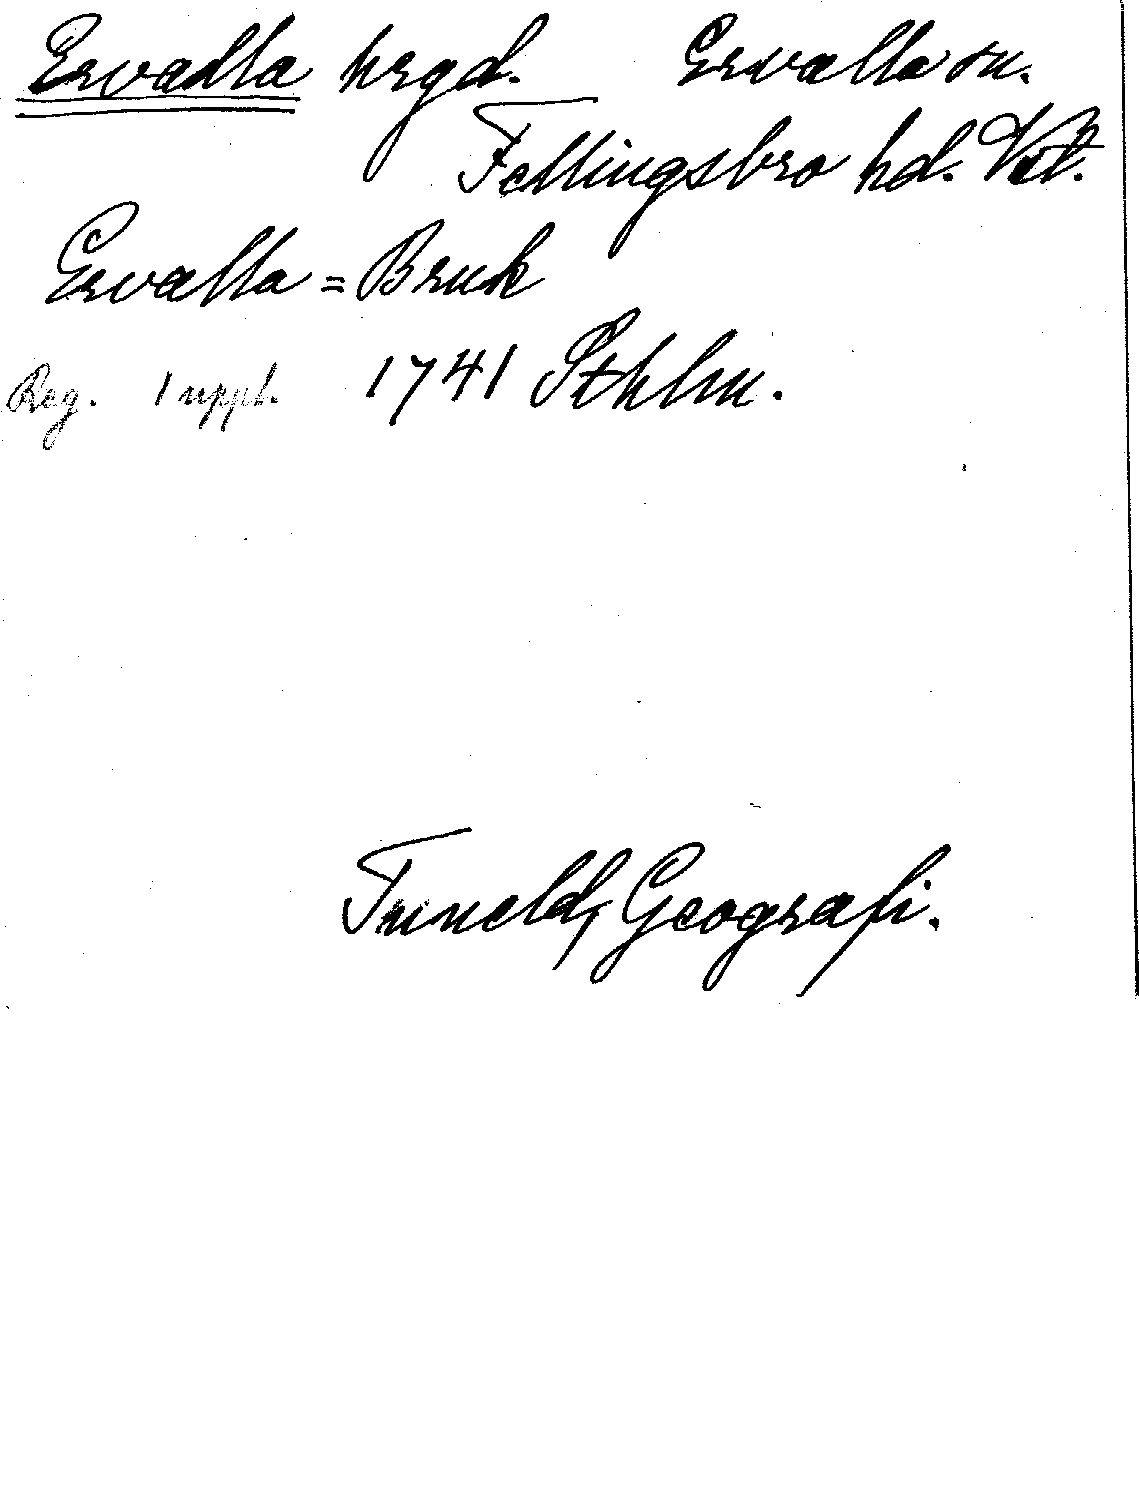 Ervalla hrgd. Ervalla sn.
Fellingsbro hd. Vstm.
Ervalla = Bruk
Reg. 1 uppl. 1741 Sthlm.
Tuneld, Geografi.